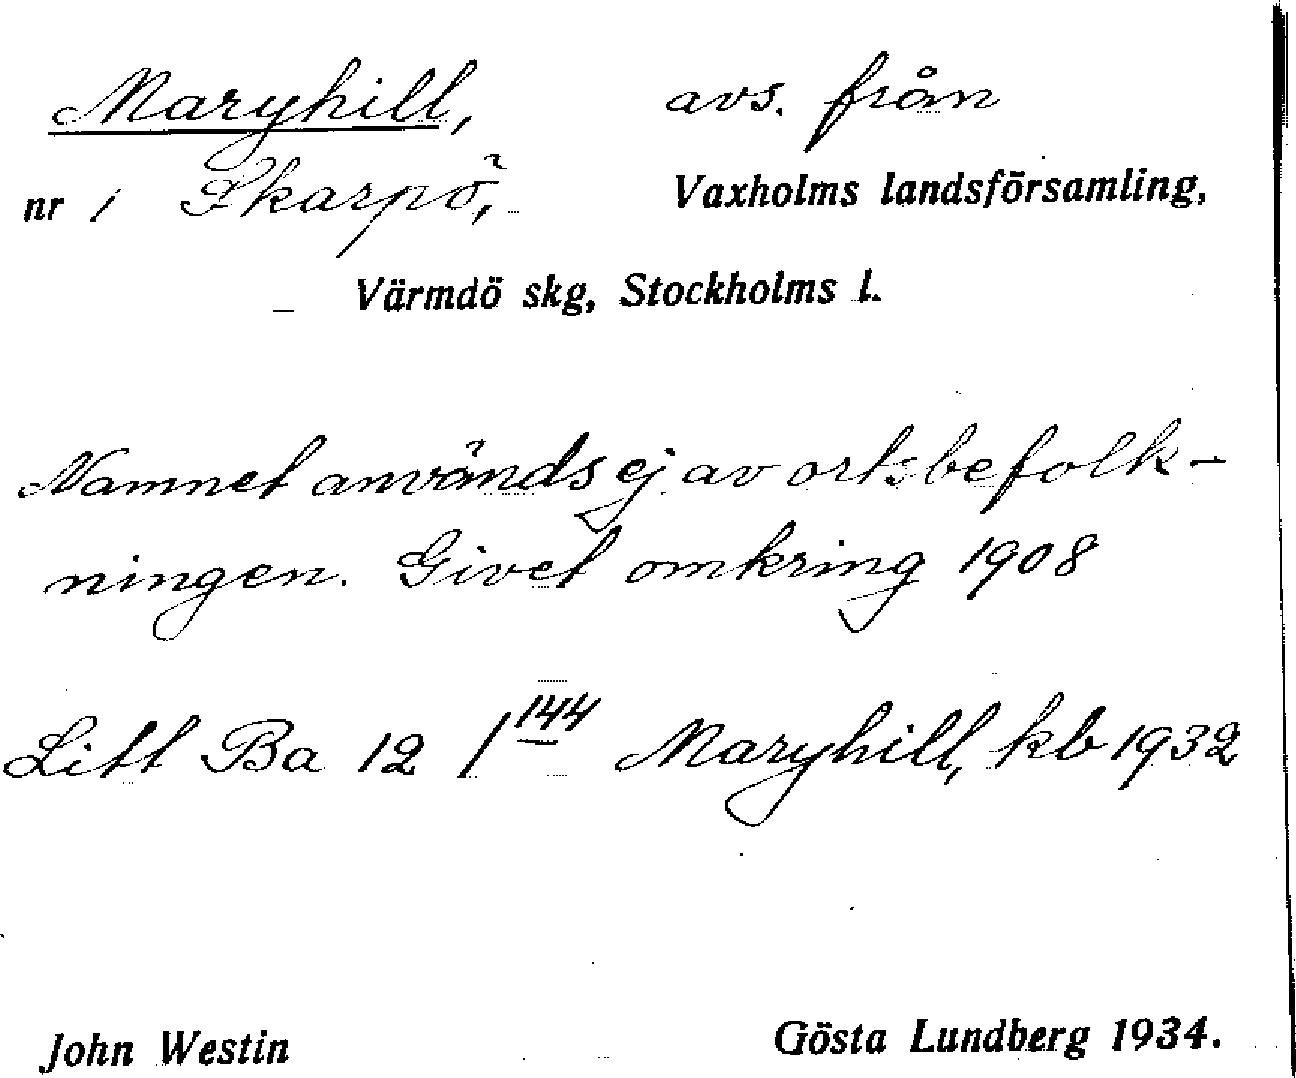 Maryhill, avs. från
nr 1 Skarpö, Vaxholms landsförsamling,
Värmdö skg, Stockholms l.
Namnet används ej av ortsbefolk-
ningen. Givet omkring 1908
Litt Ba 12 1 144 Maryhill, kb 1932
John Westin Gösta Lundberg 1934.